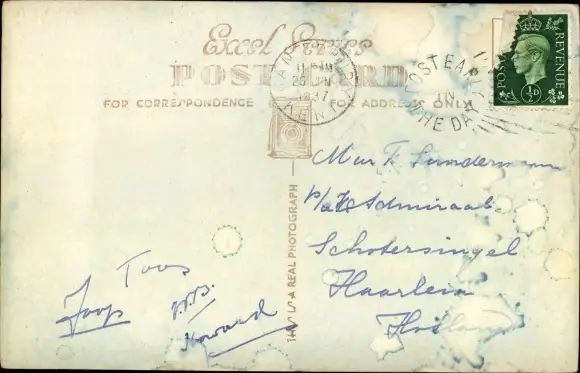 Excel Series
POST CARD
FOR CORRESPONDENCE
FOR ADDRESS ONLY
11 15 AM
1937
KENT
POST EARLY
IN
THE DAY
POSTAGE
REVENUE
½D
THIS IS A REAL PHOTOGRAPH
F. Sundermann
Admiraal
Schotersingel
Haarlem
Holland
Toos
Joop
Howard